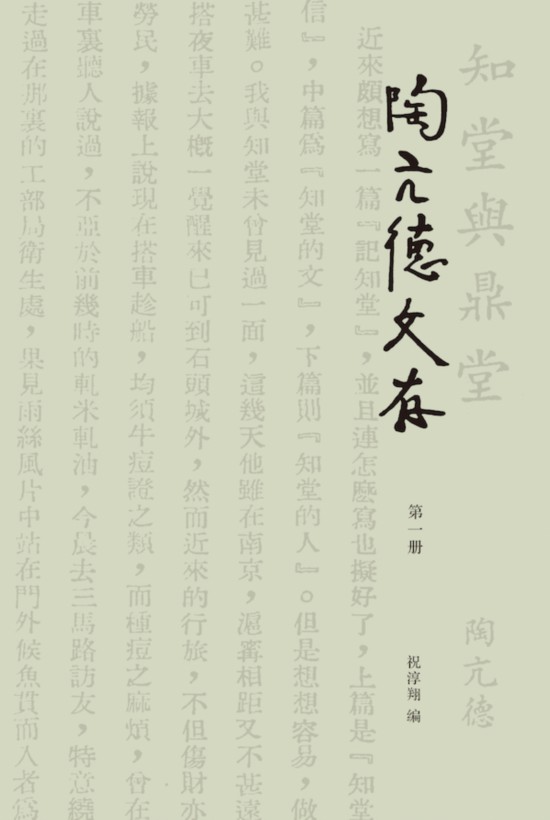 知堂與鼎堂
陶亢德
陶亢德文存
第一册
祝淳翔 编
近來頗想寫一篇『記知堂』，並且連怎麽寫也擬好了，上篇是『知堂
信』，中篇爲『知堂的文』，下篇則『知堂的人』。但是想想容易，做
甚難。我與知堂未曾見過一面，這幾天他雖在南京，滬甯相距又不甚遠
搭夜車去大槪一覺醒來已可到石頭城外，然而近來的行旅，不但傷財亦
勞民，據報上說現在搭車趁船，均須牛痘證之類，而種痘之麻煩，曾在
車裏聽人說過，不亞於前幾時的軋米軋油，今晨去三馬路訪友，特意繞
走過在那裏的工部局衛生處，果見雨絲風片中站在門外候魚貫而入者爲